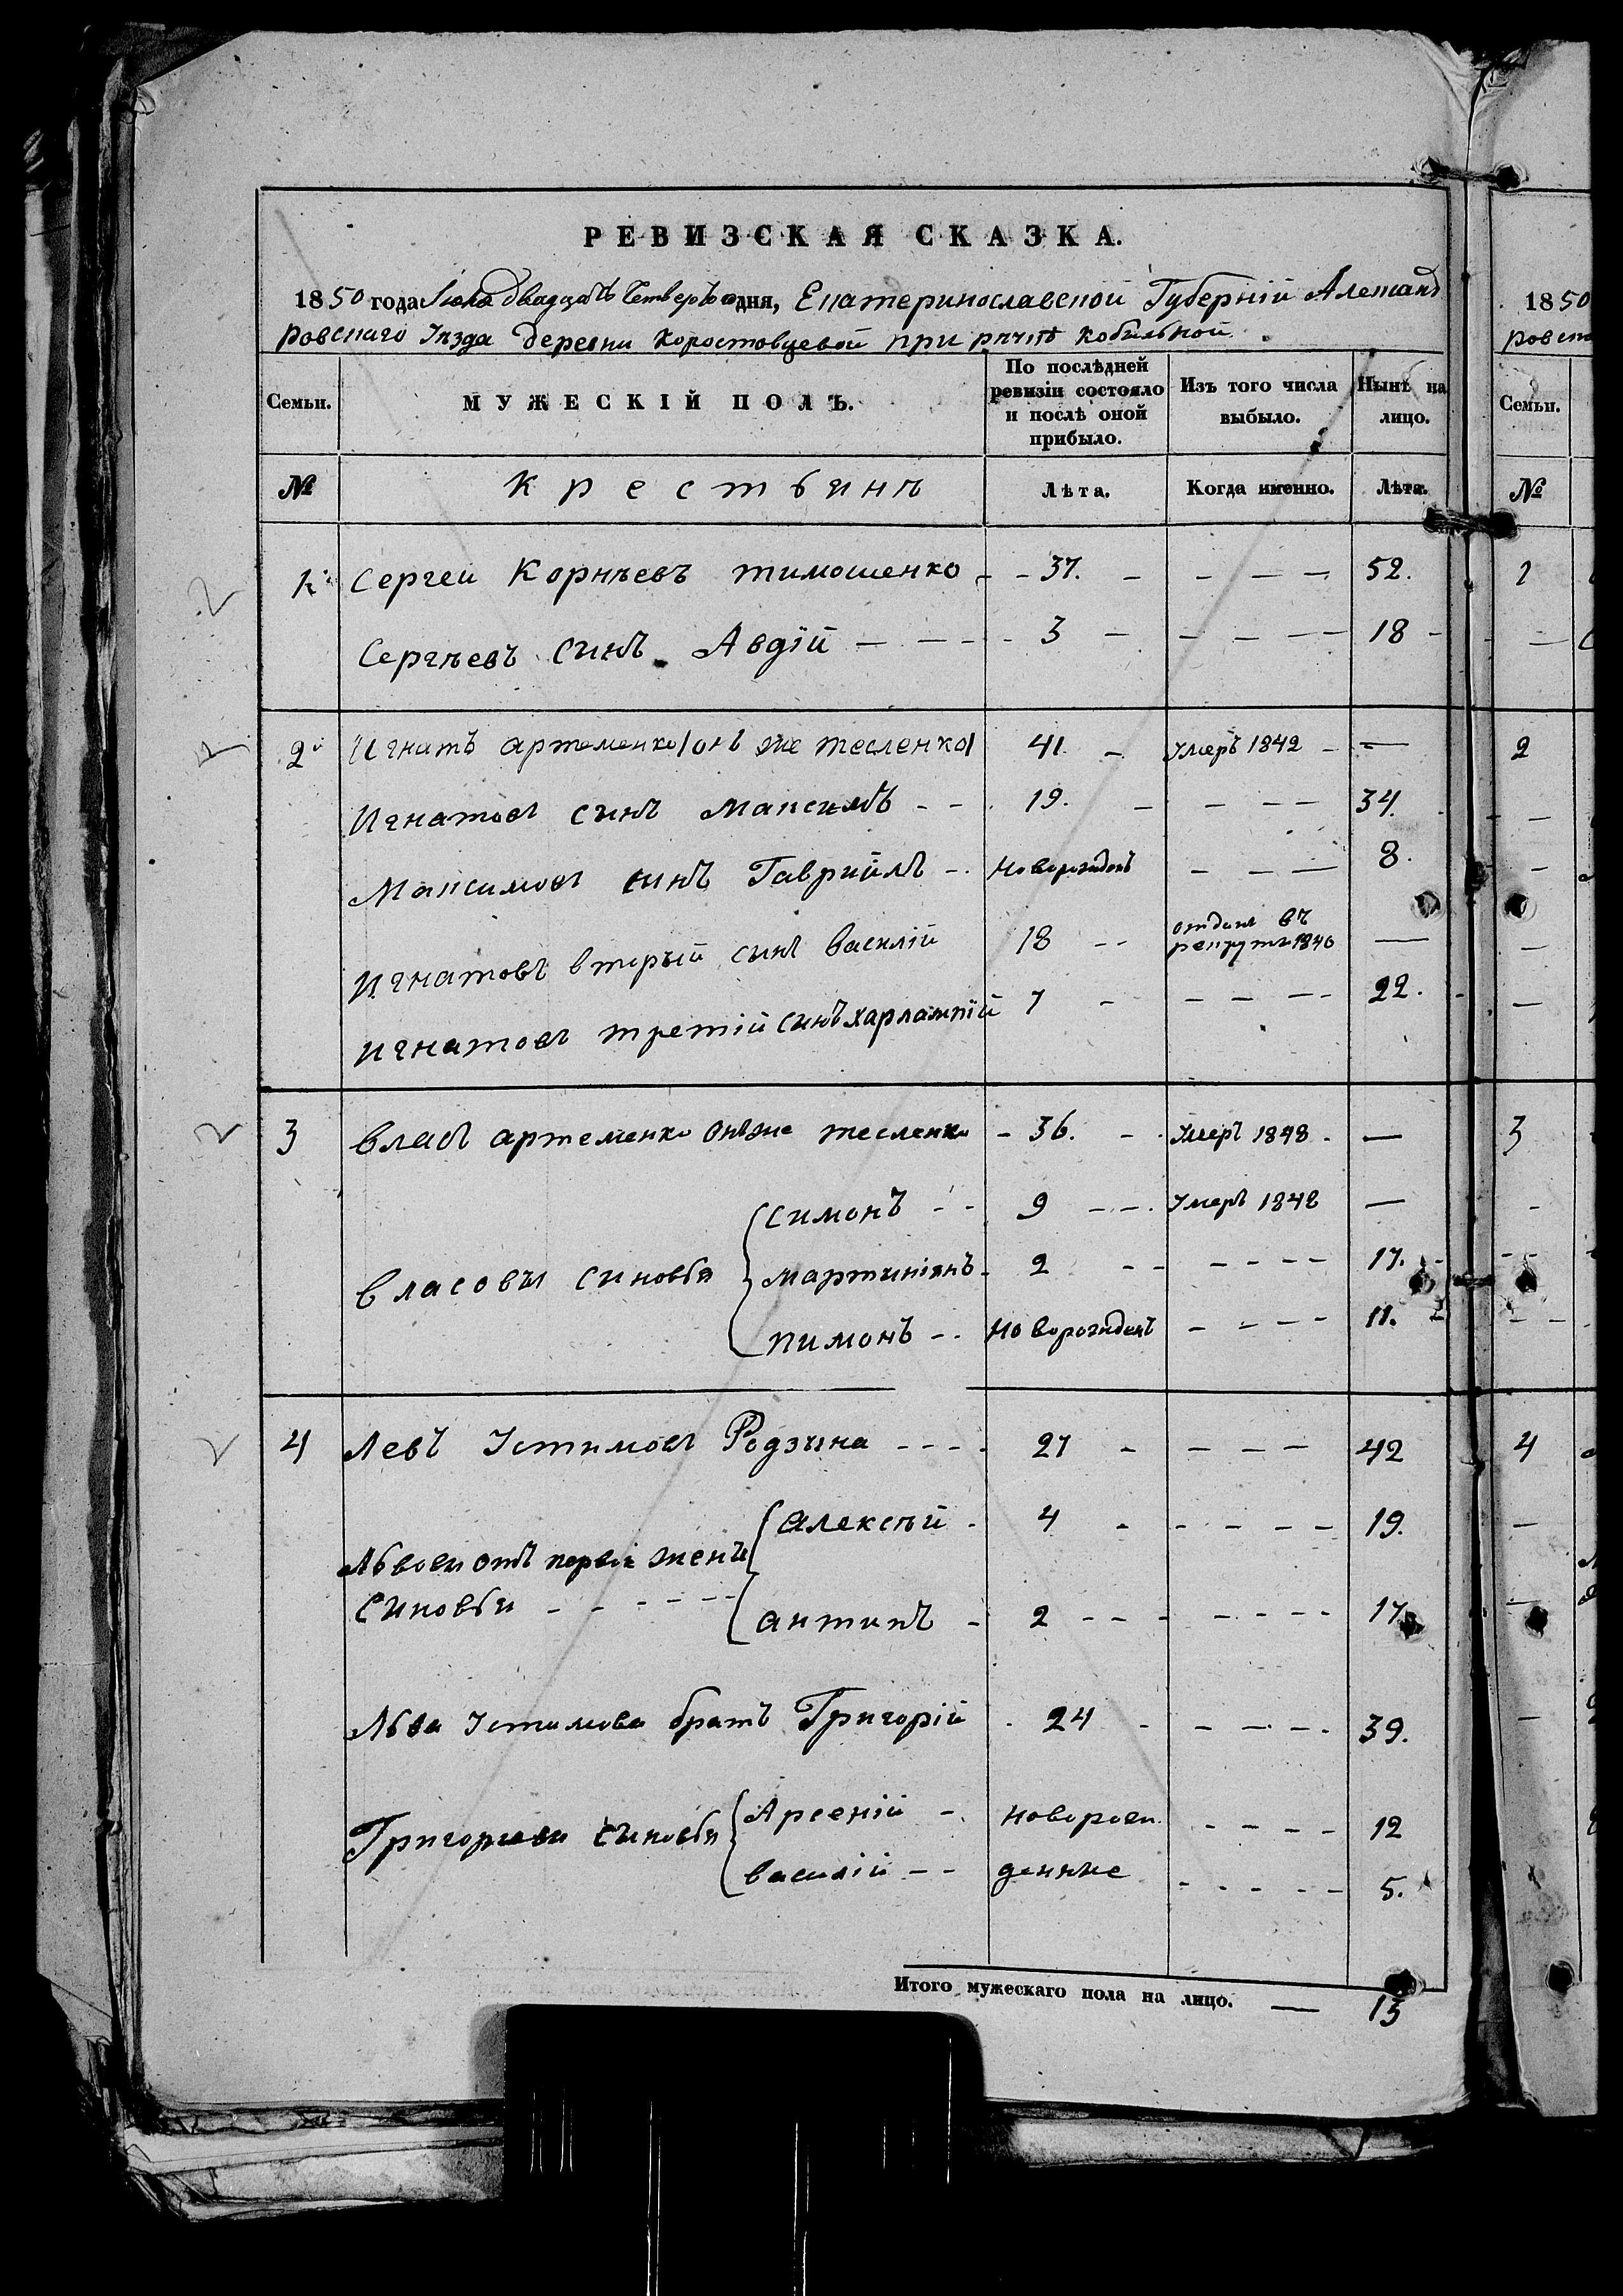 РЕВИЗСКАЯ СКАЗКА.
1850 года двадцать Четвертого дня, Екатеринославской Губерніи Александ
ровскаго Уѣзда Деревни Коростовцевой при рѣчкѣ Кобильной.
Семьи.
МУЖЕСКІЙ ПОЛЪ.
По послѣдней ревизіи состояло и послѣ оной прибыло.
Изъ того числа выбыло.
Нынѣ на лицо.
№ Крестьянъ Лѣта. Когда именно. Лѣта.
1й Сергеи Корнѣевъ тимошенко - - 37. - - — — 52.
Сергѣевъ синъ Авдій — — - - 3 — — — — 18 -
2й Игнатъ артеменко /онъ же тесленко/ 41. - Умеръ 1842 - —
Игнатовъ сынъ Максимъ - - 19. - - — — 34.
Максимовъ синъ Гавріилъ - Новорожденъ - — — 8.
Игнатовъ вторый сынъ Василій 18 - - отданъ въ
рекруты 1840 —
Игнатовъ третій синъ Харлампій 7 - - — — 22.
3 Власъ артеменко онъже тесленко - 36. - - Умеръ 1848 - —
Симонъ - - 9 - - Умеръ 1848 —
Власовы синовья Мартиніянъ - 2 - - - - - - 17.
Пимонъ - - Новорожденъ - - - - 11.
4 Левъ Устимовъ Родзина - - - - 27 - - - - 42
Алексѣй - 4 - - - - - 19.
Львовы отъ первой жены
Синовьи - - - - - -
антипъ - 2 - - - - - - - 17.
Льва Устимова братъ Григорій - 24 - - - - - 39.
Григорьевы сыновья Арсеній - Новорож - - - - 12
Василій - - денные - - - - - 5.
Итого мужескаго пола на лицо. — 13
1850
Семьи.
№
1
2
3
4